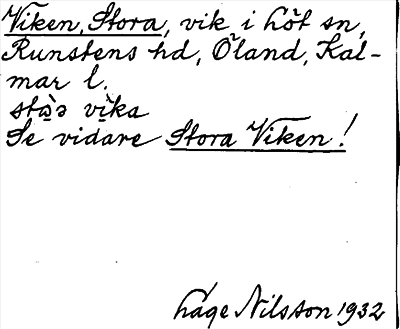 Viken, Stora, vik i Löt sn,
Runstens hd, Öland, Kal-
mar l.
vika
Se vidare Stora Viken!
Lage Nilsson 1932